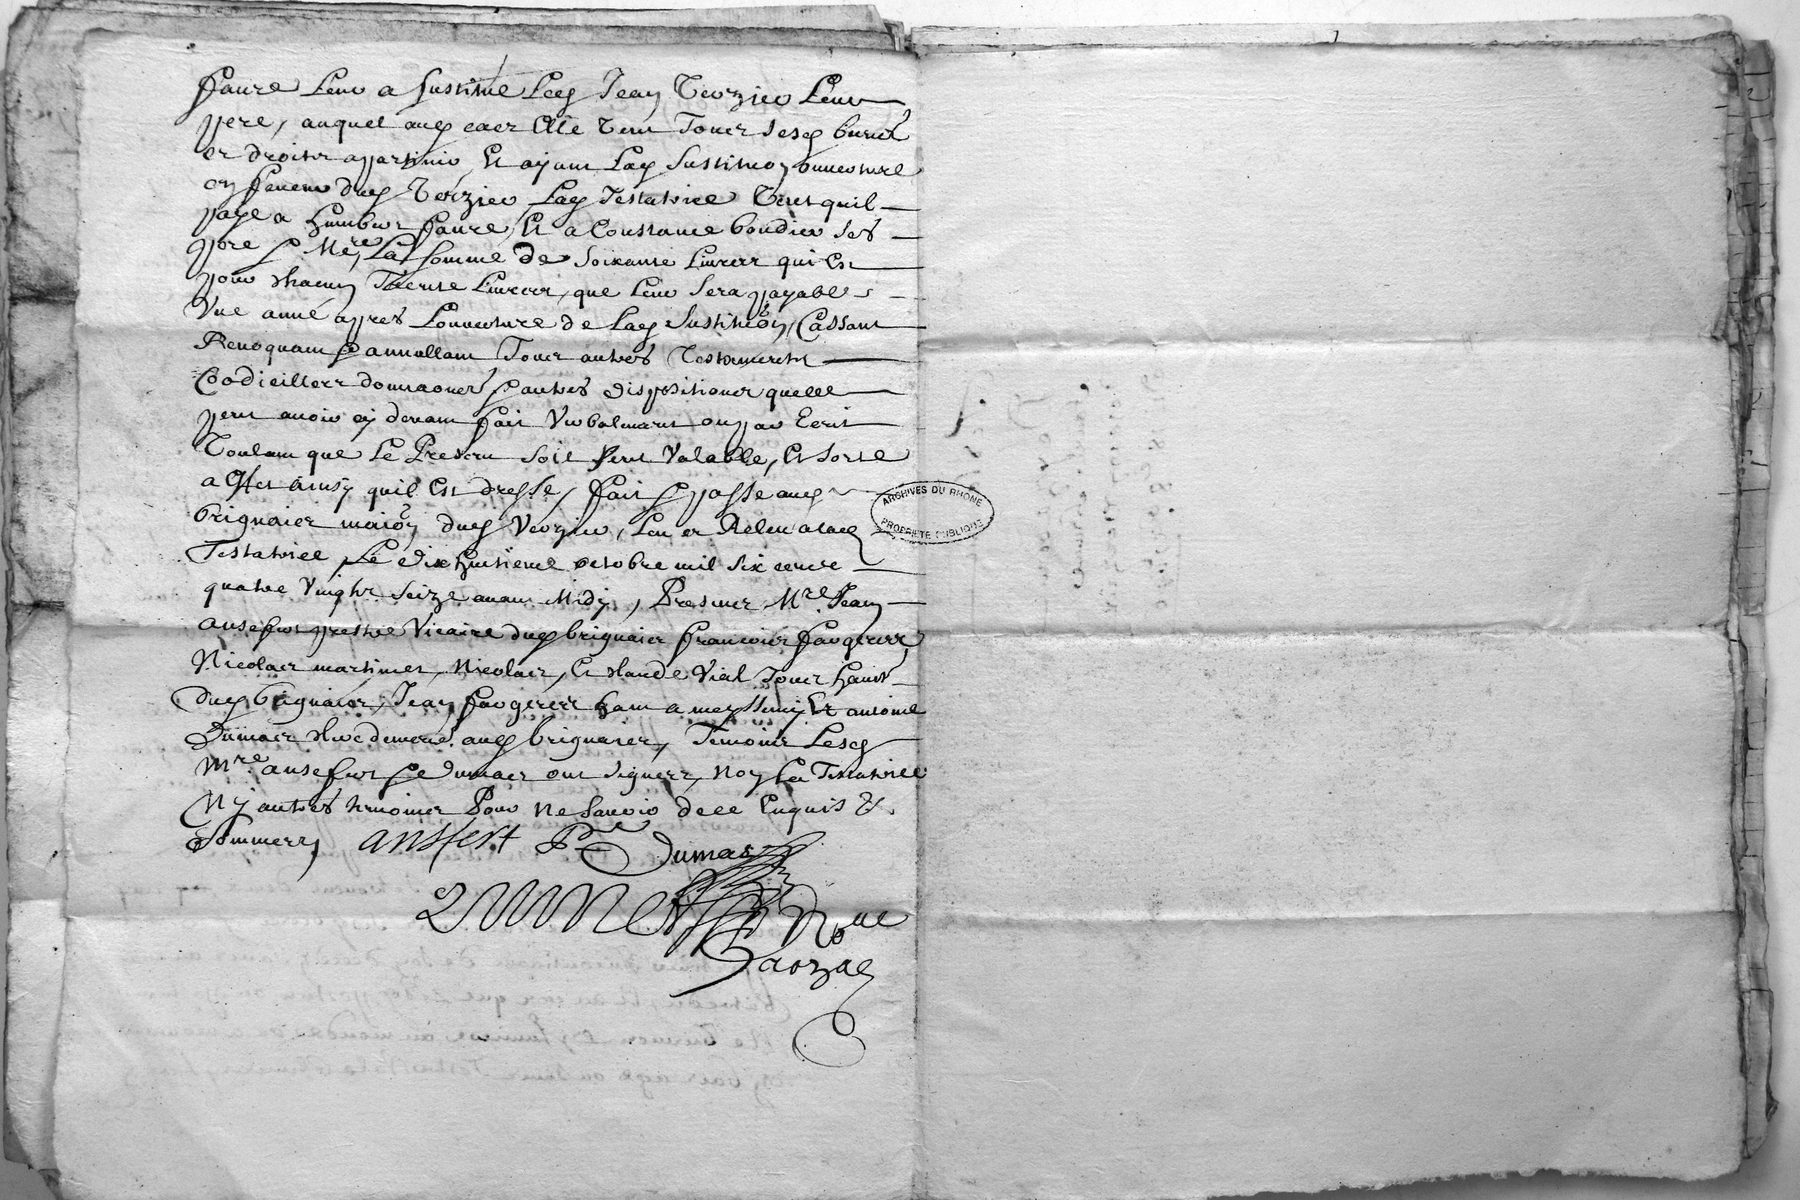 faure Leur a sustitué Led Jean Verzieu Leur
pere, auquel aud cas Elle veut Tous sesd biens
et droits appartenir, Et ayant Lad sustitu͠on ouverture
en faveur dud Verzieu Lad Testatrice veut quil
paye a humbert faure, Et a Constance boudier ses
pere & Mere, La somme de soixante Livres qui Est
pour chacun Trente Livres, que Leur sera payable
Une année appres Louverture de Lad sustitu͠on, Cassant
Revoquant & annullant Tous autres Testaments
Codicilles donnaons & autres dispositions quelle
peut avoir cy devant fait Verbalmant ou par Ecrit
Voulant que Le Present soit seul Valable, Et sorte
a effet ainsy quil Est dressé, fait & passé aud
brignais maison dud Verzieu, Leu et Releu a lad
Testatrice, Le dix huitieme octobre mil six cents
quatre Vingts seize avant Midy, Presents Mre Jean
ansefert prestre Vicaire dud brignais francois faugeres
Nicolas martinet, Nicolas, Et claude Vial Tous habit
dud brignais, Jean faugeres habt a messimy Et antoine
Dumas clerc demeurt aud brignais, Temoins Lesd
Mre ansefert & Dumas ont signers, non La Testatrice
Ny autres temoins Pour Ne scavoir de ce Enquis &
sommers
ansfert Ptre
Dumas
Nore
ARCHIVES DU RHONE
PROPRIETE PUBLIQUE